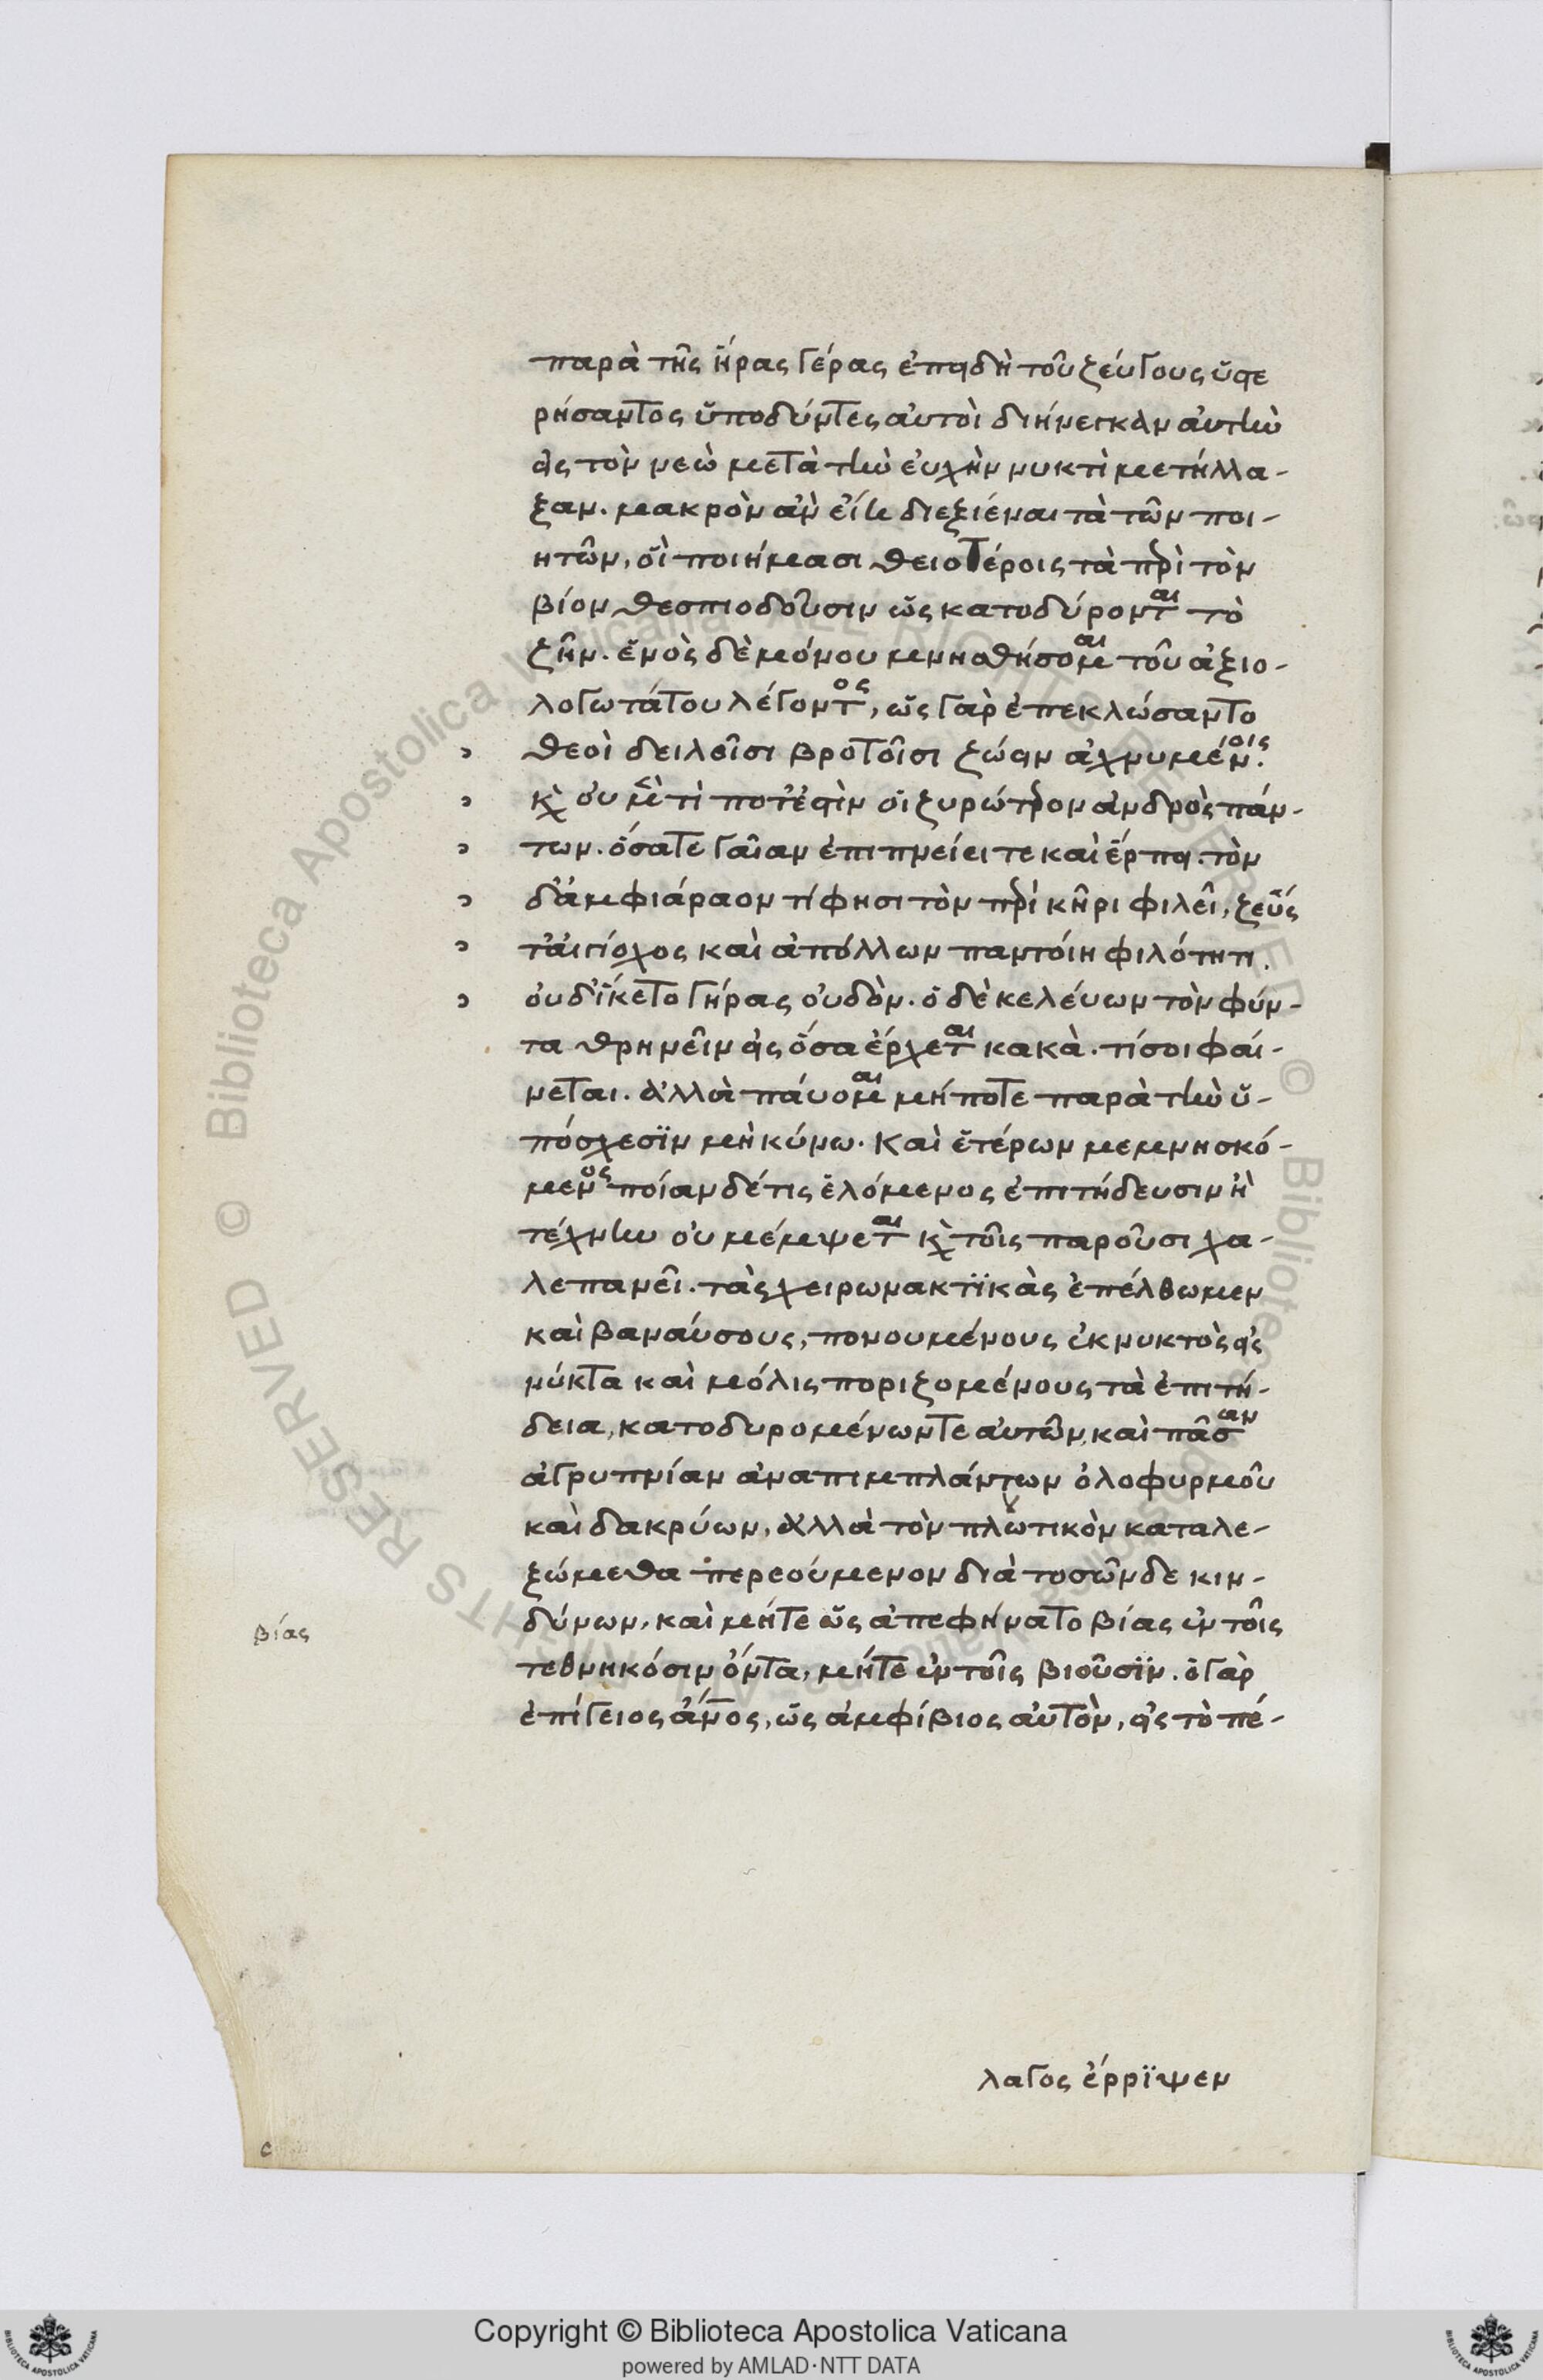 παρὰ τῆς ἥρας γέρας ἐπειδὴ τοῦ ζεύγους ὑστε
ρήσαντος ὑποδύντες αὐτοὶ διήνεικαν αὐτὴν
εἰς τὸν νεὼ μετὰ τὴν εὐχὴν νυκτὶ μετήλλα-
ξαν. μακρὸν ἂν εἴη διεξιέναι τὰ τῶν ποι-
ητῶν, οἳ ποιήμασι θειοτέροις τὰ περὶ τὸν
βίον θεσπιοδοῦσιν ὡς κατοδύρονται τὸ
ζῆν. ἑνὸς δὲ μόνου μνησθήσομαι τοῦ ἀξιο-
λογωτάτου λέγοντος, ὣς γὰρ ἐπεκλώσαντο
θεοὶ δειλοῖσι βροτοῖσι ζώειν ἀχνυμένοις.
κὶ οὐ μὲν τί ποτ' ἐστὶν ὀϊζυρώτερον ἀνδρὸς πάν-
των. ὅσά τε γαῖαν ἔπι πνείει τε καὶ ἕρπει. τὸν
δ' ἀμφιάραον τί φησι τὸν περὶ κῆρι φιλεῖ, ζεύς
τ' αἰγίοχος καὶ ἀπόλλων παντοίη φιλότητι.
οὐδ' ἵκετο γήραος οὐδόν. ὁ δὲ κελεύων τὸν φύν-
τα θρηνεῖν εἰς ὅσα ἔρχεται κακὰ. τί σοι φαί-
νεται. ἀλλὰ παύομαι μή ποτε παρὰ τὴν ὑ-
πόσχεσϊν μηκύνω. Καὶ ἑτέρων μεμνησκό-
μενος ποίαν δέ τις ἑλόμενος ἐπιτήδευσιν ἢ
τέχνην οὐ μέμψεται κὶ τοῖς παροῦσι χα-
λεπανεῖ. τὰς χειρωνακτϊκὰς ἐπέλθωμεν
καὶ βαναύσους, πονουμένους ἐκ νυκτὸς εἰς
νύκτα καὶ μόλις ποριζομένους τὰ ἐπιτή-
δεια, κατοδυρομένων τε αὐτῶν, καὶ πᾶσαν
ἀγρυπνίαν ἀναπιμπλάντων ὀλοφυρμοῦ
καὶ δακρύων, ἀλλὰ τὸν πλωτικὸν καταλε-
ξώμεθα περεούμενον διὰ τοσῶνδε κιν-
δύνων, καὶ μήτε ὡς ἀπεφήνατο βίας ἐν τοῖς
βίας
τεθνηκόσιν ὄντα, μήτε ἐν τοῖς βιοῦσϊν. ὁ γὰρ
ἐπίγειος ἄνος, ὡς ἀμφίβιος αὐτὸν, εἰς τὸ πέ-
λαγος ἔρρϊψεν
Copyright © Biblioteca Apostolica Vaticana
powered by AMLAD·NTT DATA